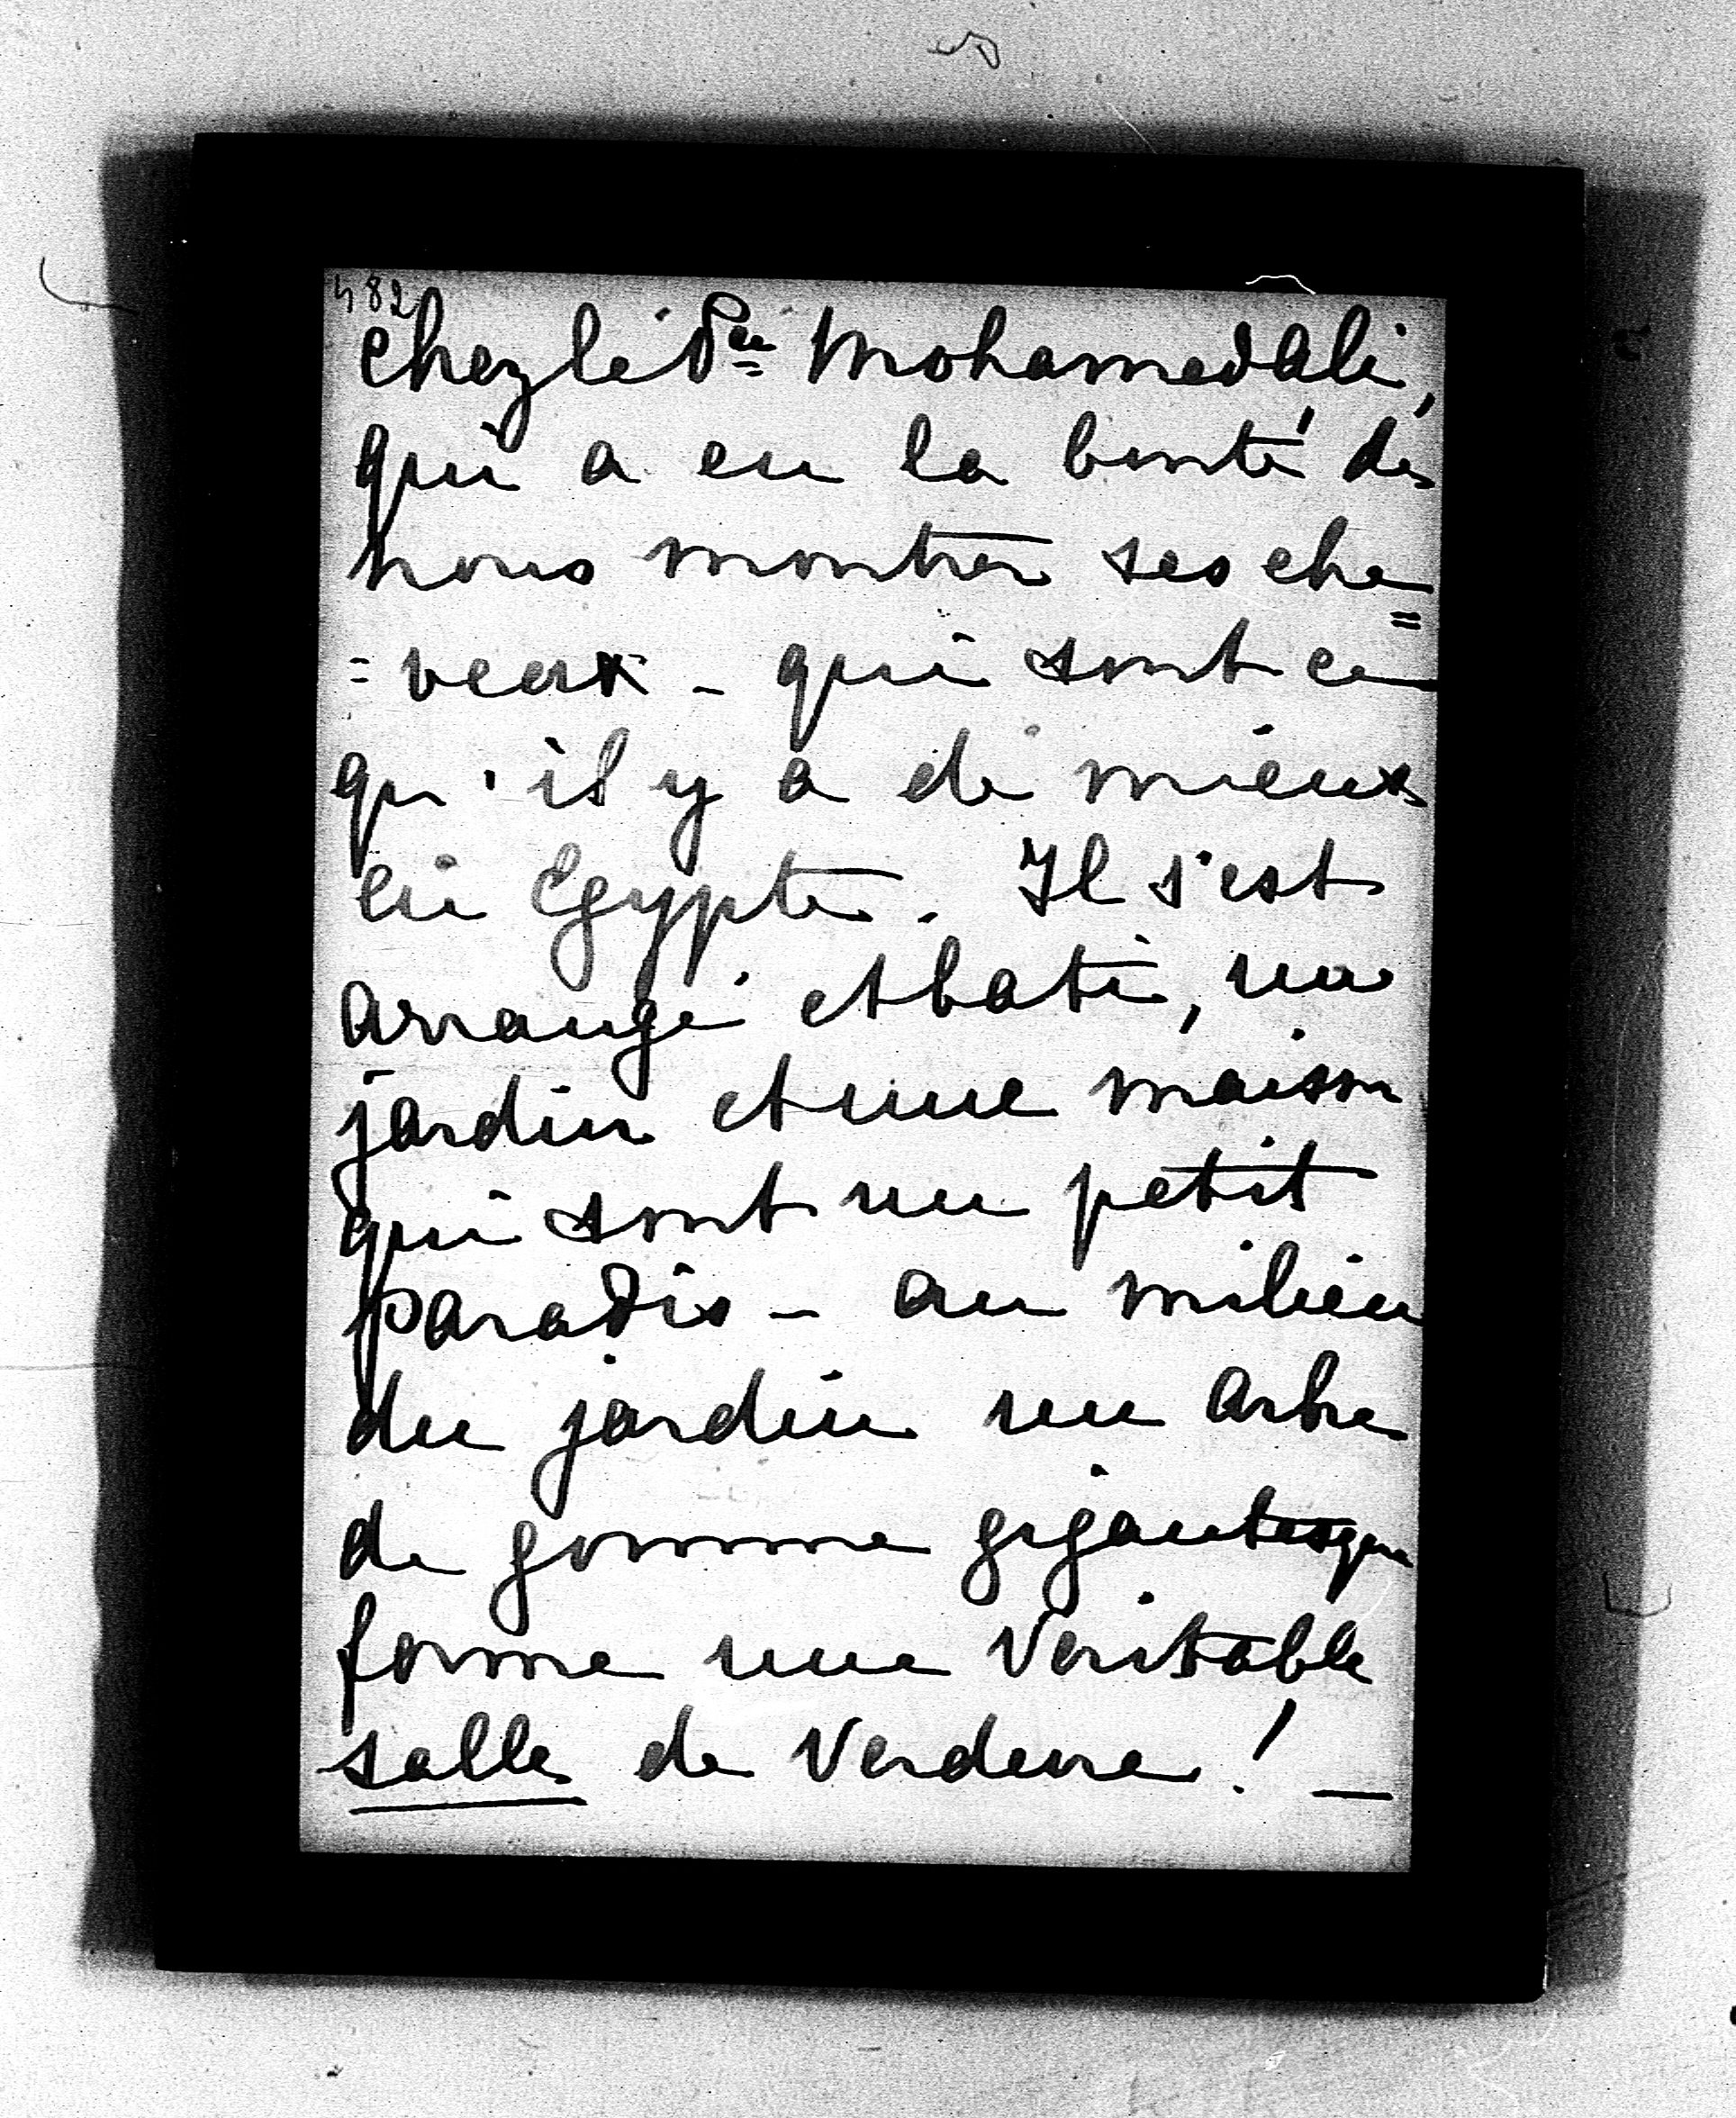 482
chez le Pce Mohamed Ali,
qui a eu la bonté de
nous montrer ses che=
=veaux - qui sont ce
qu'il y a de mieux
en Egypte. Il s'est
arrangé et bati, un
jardin et une maison
qui sont un petit
paradis - au milieu
du jardin un arbre
de gomme gigantesque
forme une veritable
salle de verdure! -